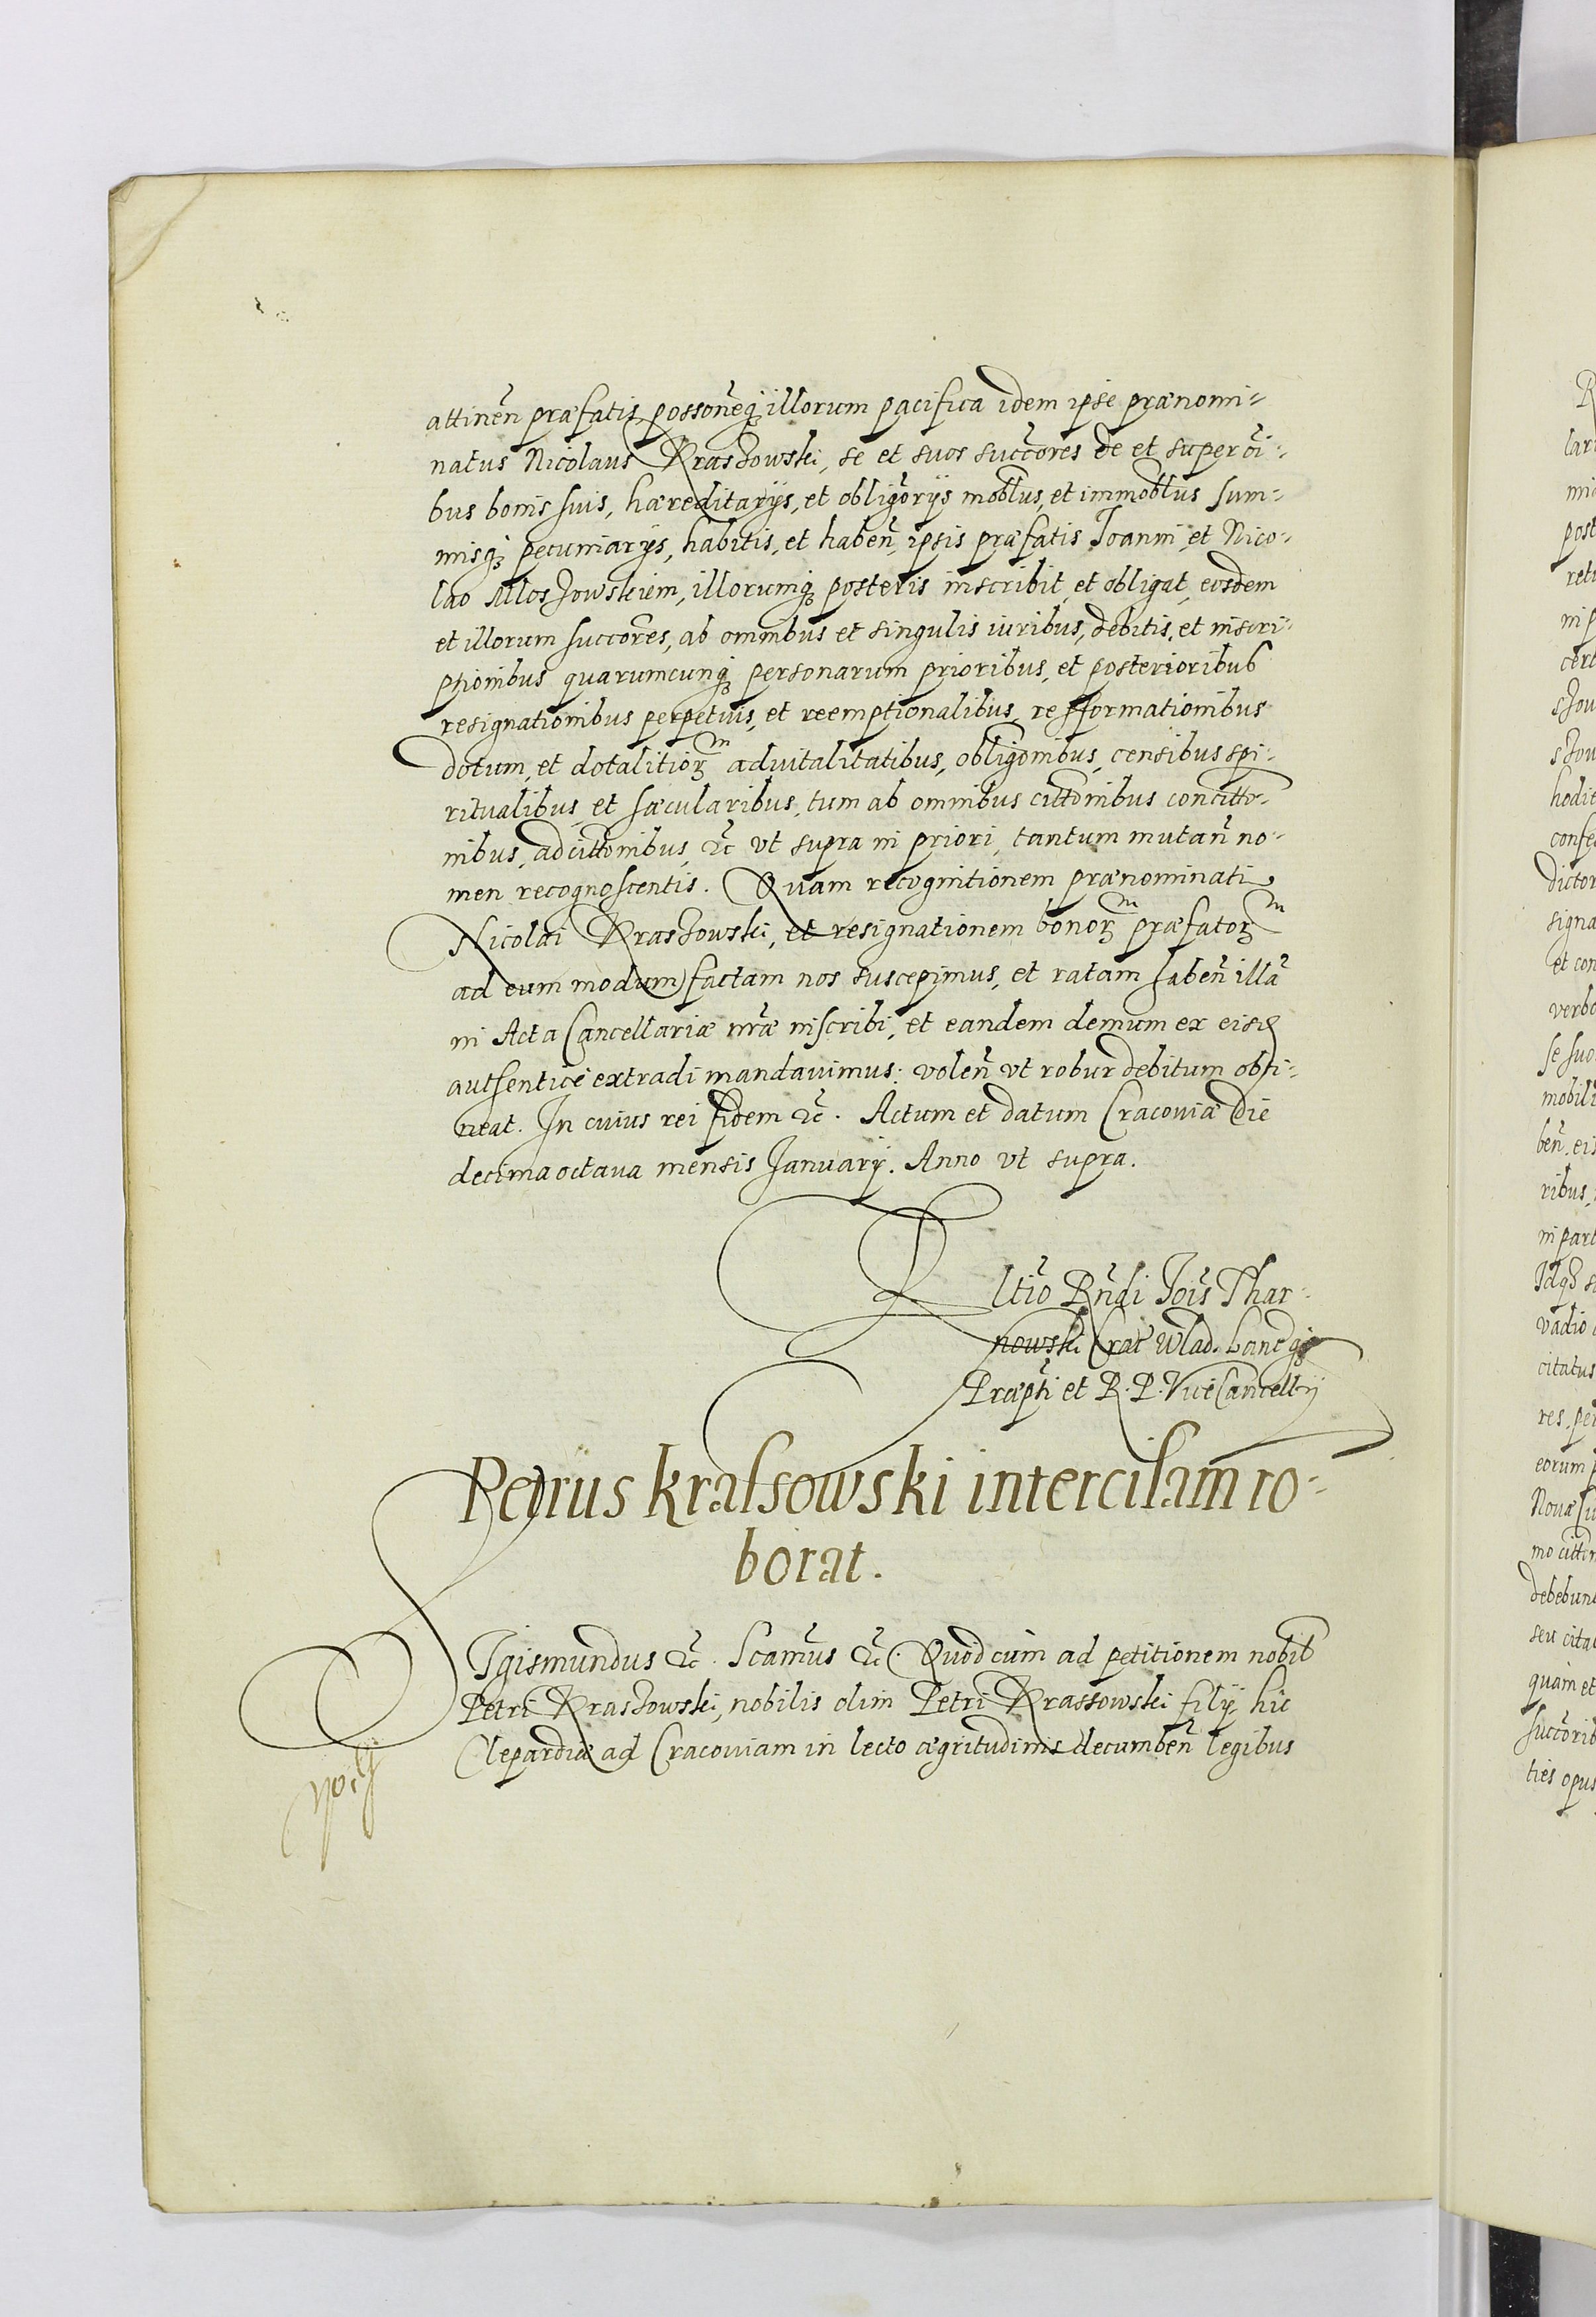 attineñ præfatis, possoneq; illorum pacifica idem ipse prænomi-
natus Nicolaus Kraszowski, se et suos succores de et super oi-
bus bonis suis, hæreditarijs, et obligorijs moblus, et immoblus sum-
misq; pecuniarijs, habitis, et habeñ, ipsis præfatis Joanni et Nico-
lao Mloszowskiem, illorumq; posteris inscribit, et obligat, eosdem
et illorum succores, ab omnibus et singulis iuribus, debitis, et inscri-
ptionibus quarumcunq; personarum prioribus, et posterioribus
resignationibus perpetuis, et reemptionalibus, refformationibus
dotum, et dotalitiorm advitalitatibus, obligonibus, censibus spi-
ritualibus, et sæcularibus, tum ab omnibus cittonibus concitto-
nibus, adcittonibus, &c vt supra in priori, tantum mutañ no-
men recognoscentis. Quam recognitionem prænominati
Nicolai Kraszowski, et resignationem bonorm præfatorm
ad eum modum factam nos suscepimus, et ratam habeñ illã
in Acta Cancellariæ nræ inscribi, et eandem demum ex eisd
authenticè extradi mandauimus: voleñ vt robur debitum obti-
neat. In cuius rei fidem &c. Actum et datum Cracouiæ die
decima octaua mensis Januarij. Anno vt supra.
Rltio Rndi Jois Thar-
nowski Crac Wlad. Lancq;
Præpti et R. P. ViceCancellrij
Petrus Krassowski intercisam ro-
borat.
SIgismundus &c. Scamus &c. Quod cum ad petitionem nobil
Petri Kraszowski, nobilis olim Petri Krassowski filij, hic
Clepardiæ ad Cracouiam in lecto ægritudinis decumbeñ legibus